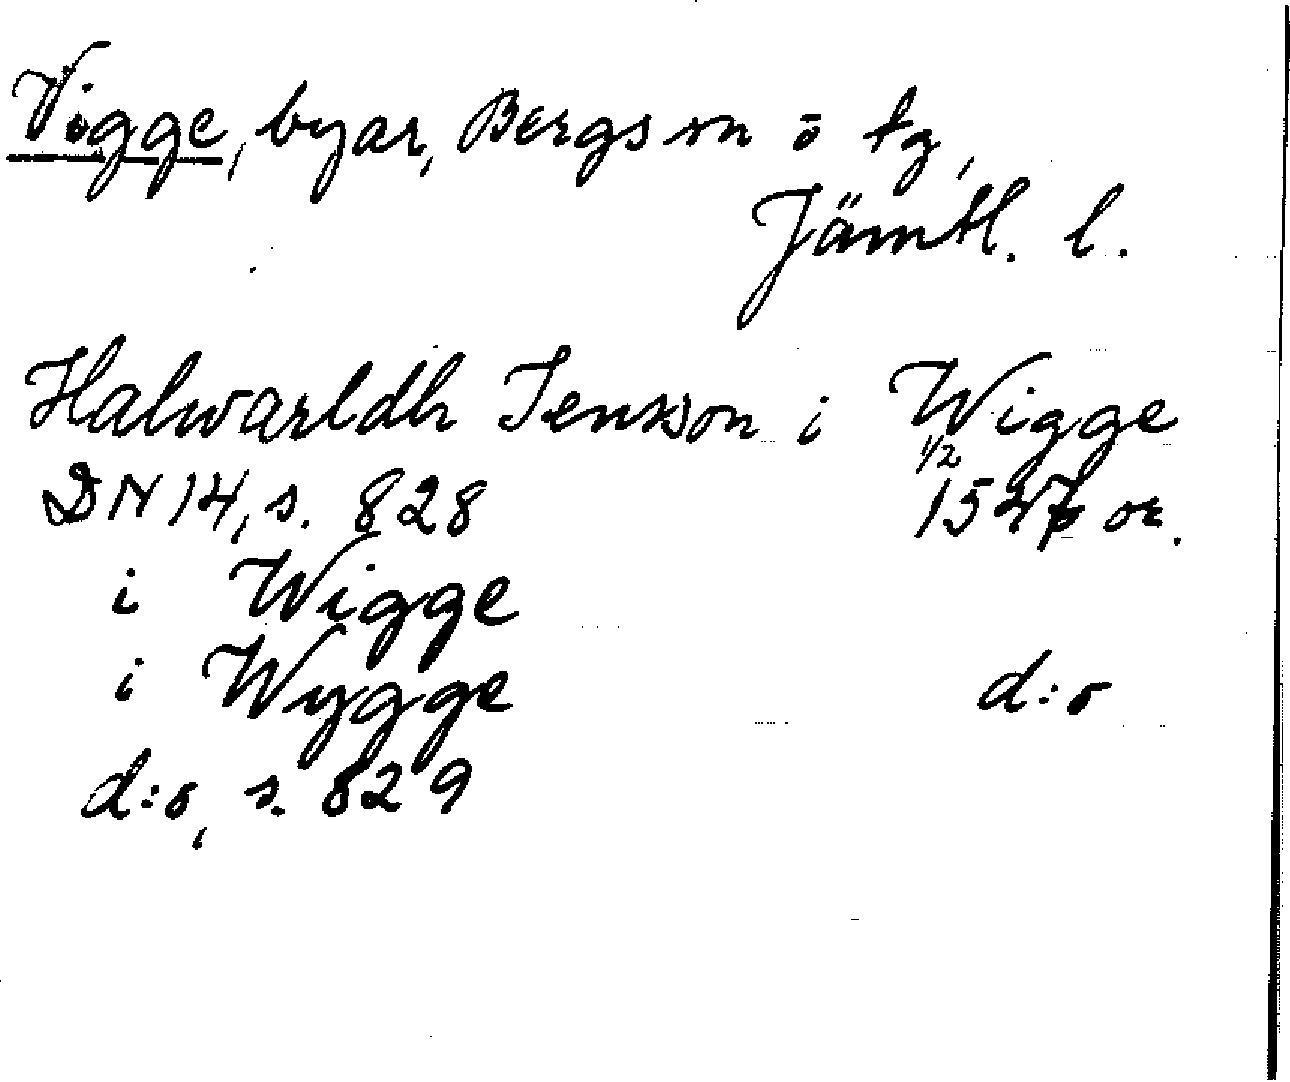 Vigge, byar, Bergs sn o tg,
Jämtl. l.
Halwardh Jensson i Wigge
DN 14, s. 828 1/2 1527 or.
i Wigge
i Wygge d:o
d:o, s. 829